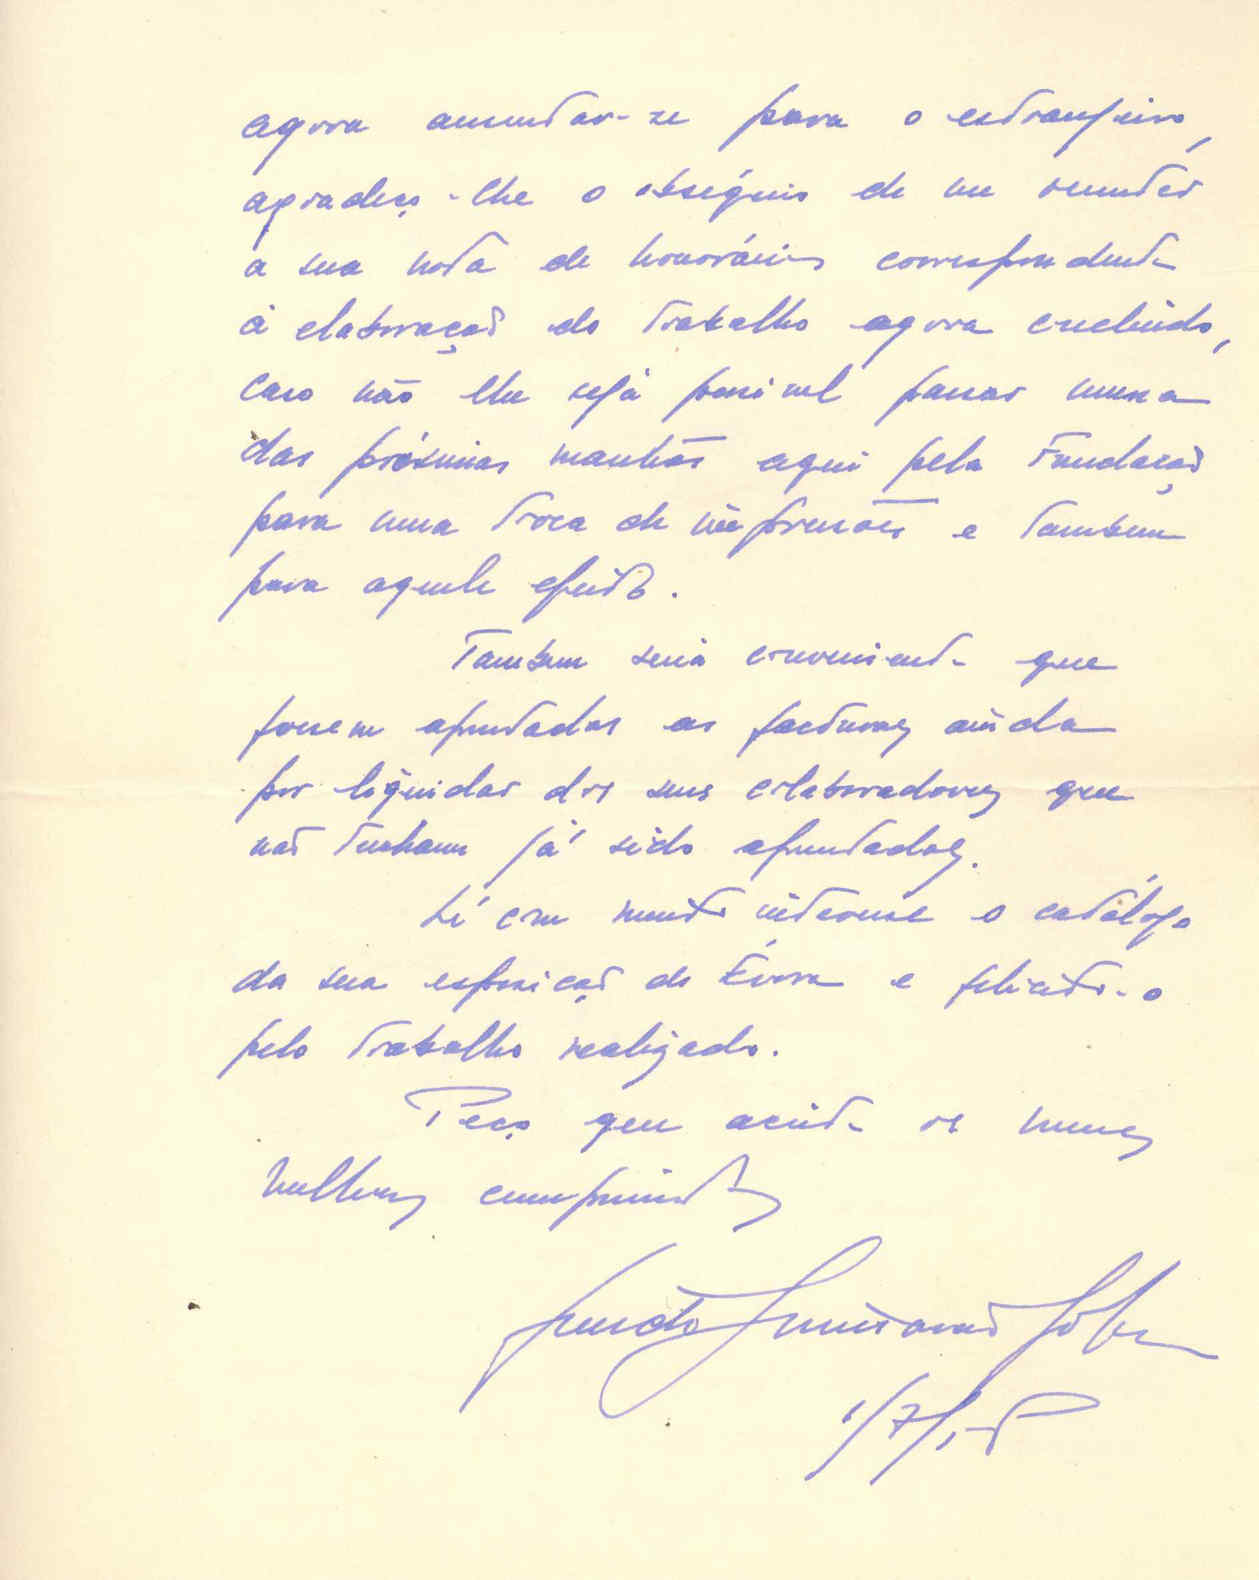 agora ausentar-se para o estrangeiro,
agradeço-lhe o obséquio de me remeter
a sua nota de honorários correspondente
à elaboração do trabalho agora concluído,
caso não lhe seja possivel passar numa
das próximas manhãs aqui pela Fundação
para uma troca de impressões e tambem
para aquele efeito.
Tambem seria conveniente que
fossem apresentadas as facturas ainda
por liquidar dos seus colaboradores que
não tenham já sido apresentadas.
Li com muito interesse o catálogo
da sua exposição de Évora e felicito-o
pelo trabalho realizado.
Peço que aceite os meus
melhores cumprimentos
Guimarães
1/7/5